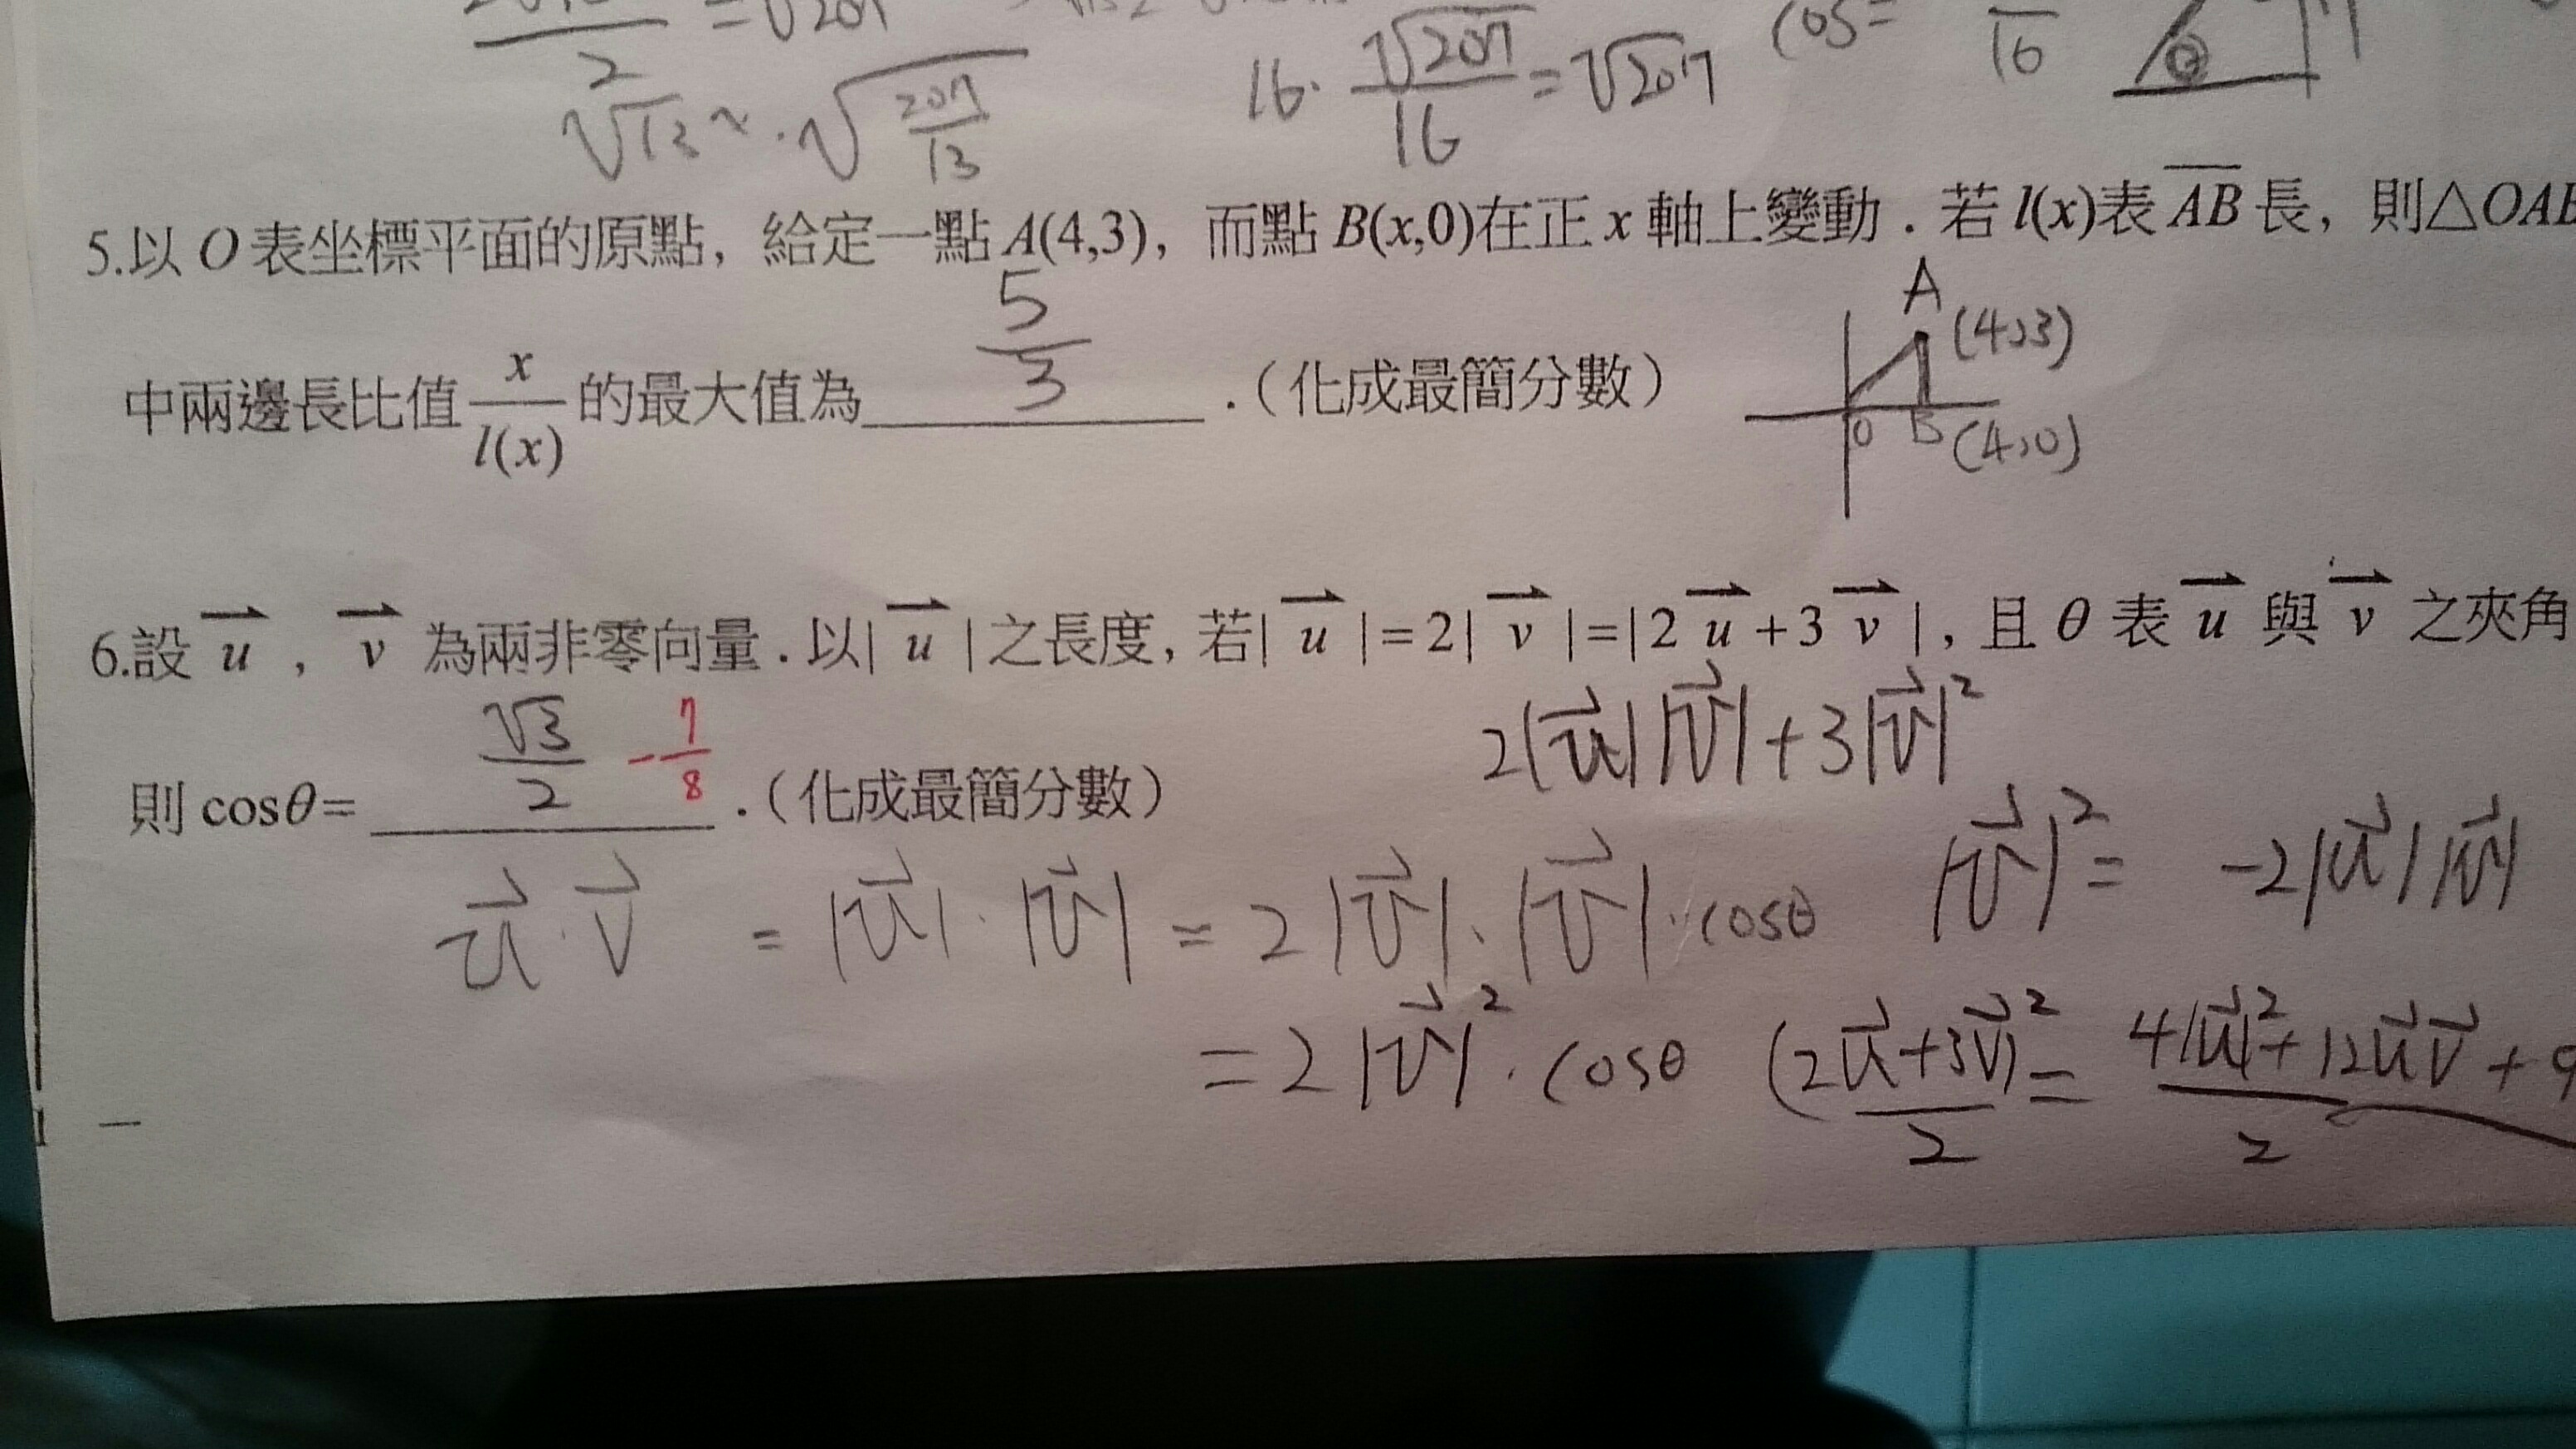 2 = √207
√13 x · √207/13
16 · √207/16 = √207
cos= 16
5.以 O 表坐標平面的原點，給定一點 A(4,3)，而點 B(x,0)在正 x 軸上變動．若 l(x)表 AB 長，則△OAB
中兩邊長比值 x/l(x) 的最大值為 5/3 ．（化成最簡分數）
A
(4,3)
O B (4,0)
6.設 u ， v 為兩非零向量．以| u |之長度，若| u |=2| v |=|2 u +3 v |，且 θ 表 u 與 v 之夾角
則 cosθ= √3/2 -7/8 ．（化成最簡分數）
2|u||v|+3|v|²
|v|² = -2|u||v|
u·v = |u|·|v| = 2|v|·|v|·cosθ
= 2|v|²·cosθ
(2u+3v)²/2 = 4|u|²+12uv+9/2
1